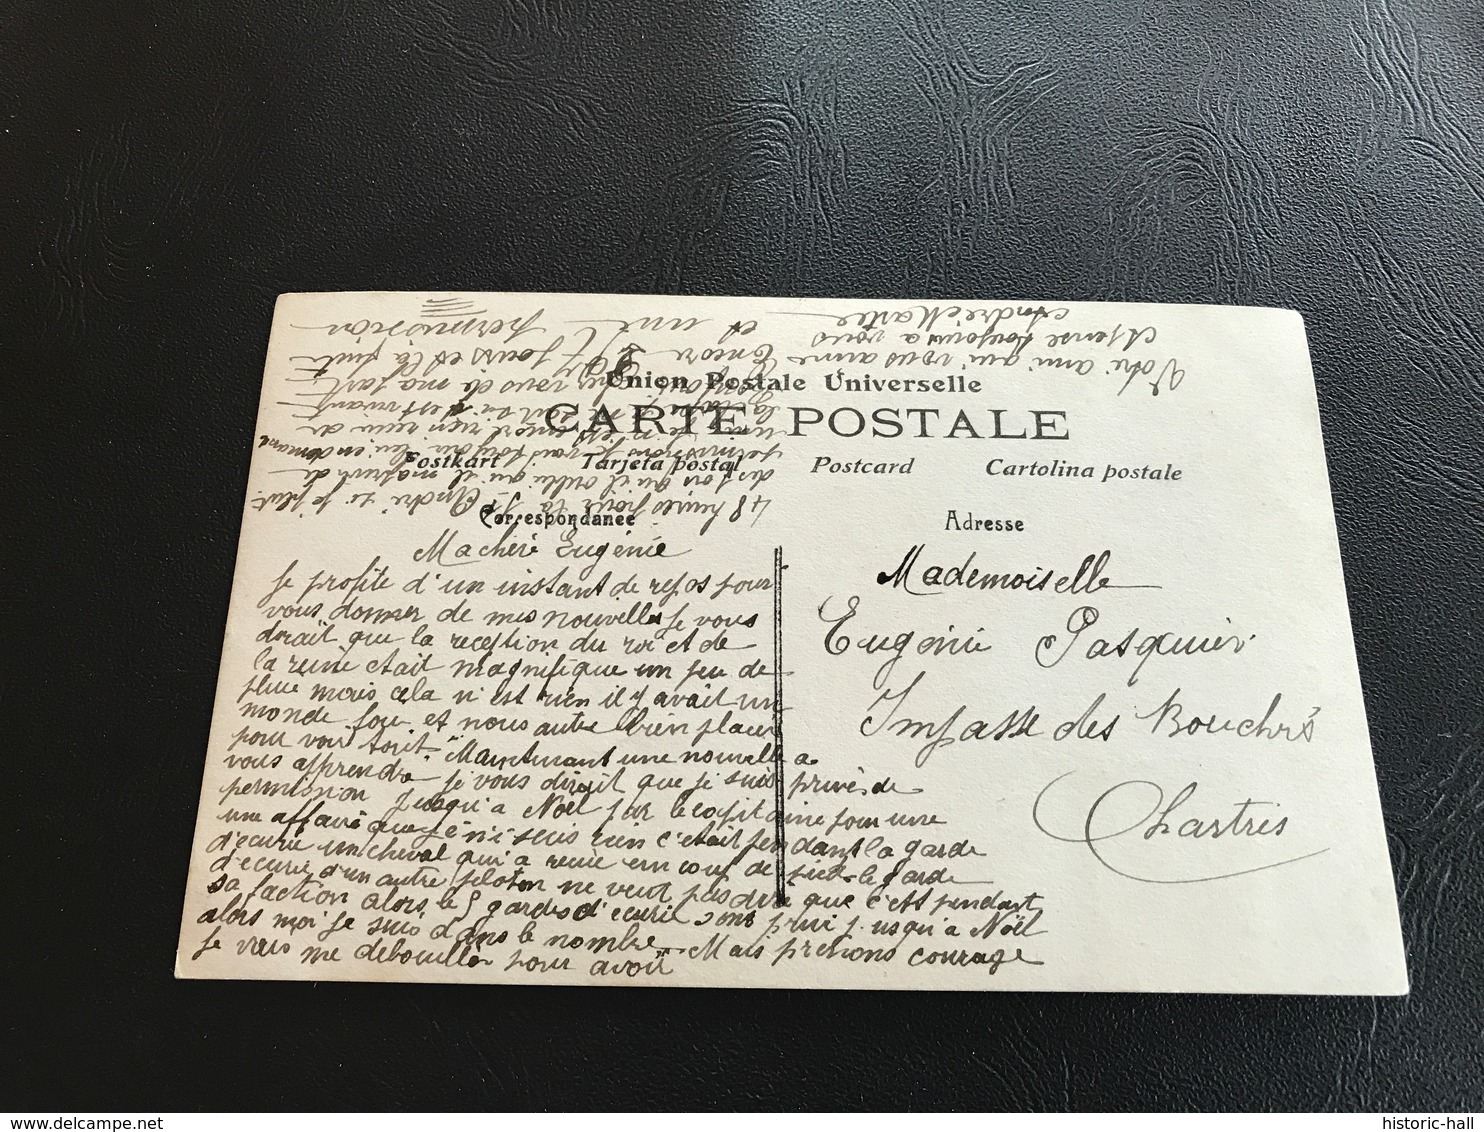 Union Postale Universelle
CARTE POSTALE
Postkart Tarjeta postal Postcard Cartolina postale
Correspondance
Adresse
Ma cheré Eugénie
Je profite d'un instant de repos pour
vous donner de mes nouvelles Je vous
dirait que la reception du roi et de
la reine etait magnifique un peu de
pluie mais cela n'est rien il y avait un
monde fou et nous autre bien placer
pour voir tout. Maintenant une nouvelle a
vous apprendre je vous dirait que je suis privé de
permission jusqu'a Noël par le capitaine pour une
une affaire que je n'i suis rien c'était pendant la garde
d'écurie un cheval qui a recue un coup de pied le garde
d'écurie d'un autre peloton ne veut pas dire que c'est pendant
sa faction alors le 5 gardes d'écurie sont privé jusqu'a Noël
alors moi je suis dans le nombre. Mais prenons courage
Je vais me debouiller pour avoir
48 heures pour la St André si je peut
des fois qu'il oubli qu'il m'a privé de
permissions
Encore 27 Jours est la fuite
et une permission
Votre ami qui vous aime
et pense toujours a vous
André Marte
Mademoiselle
Eugénie Pasquier
Impasse des Bouchers
Chartres
historic-hall